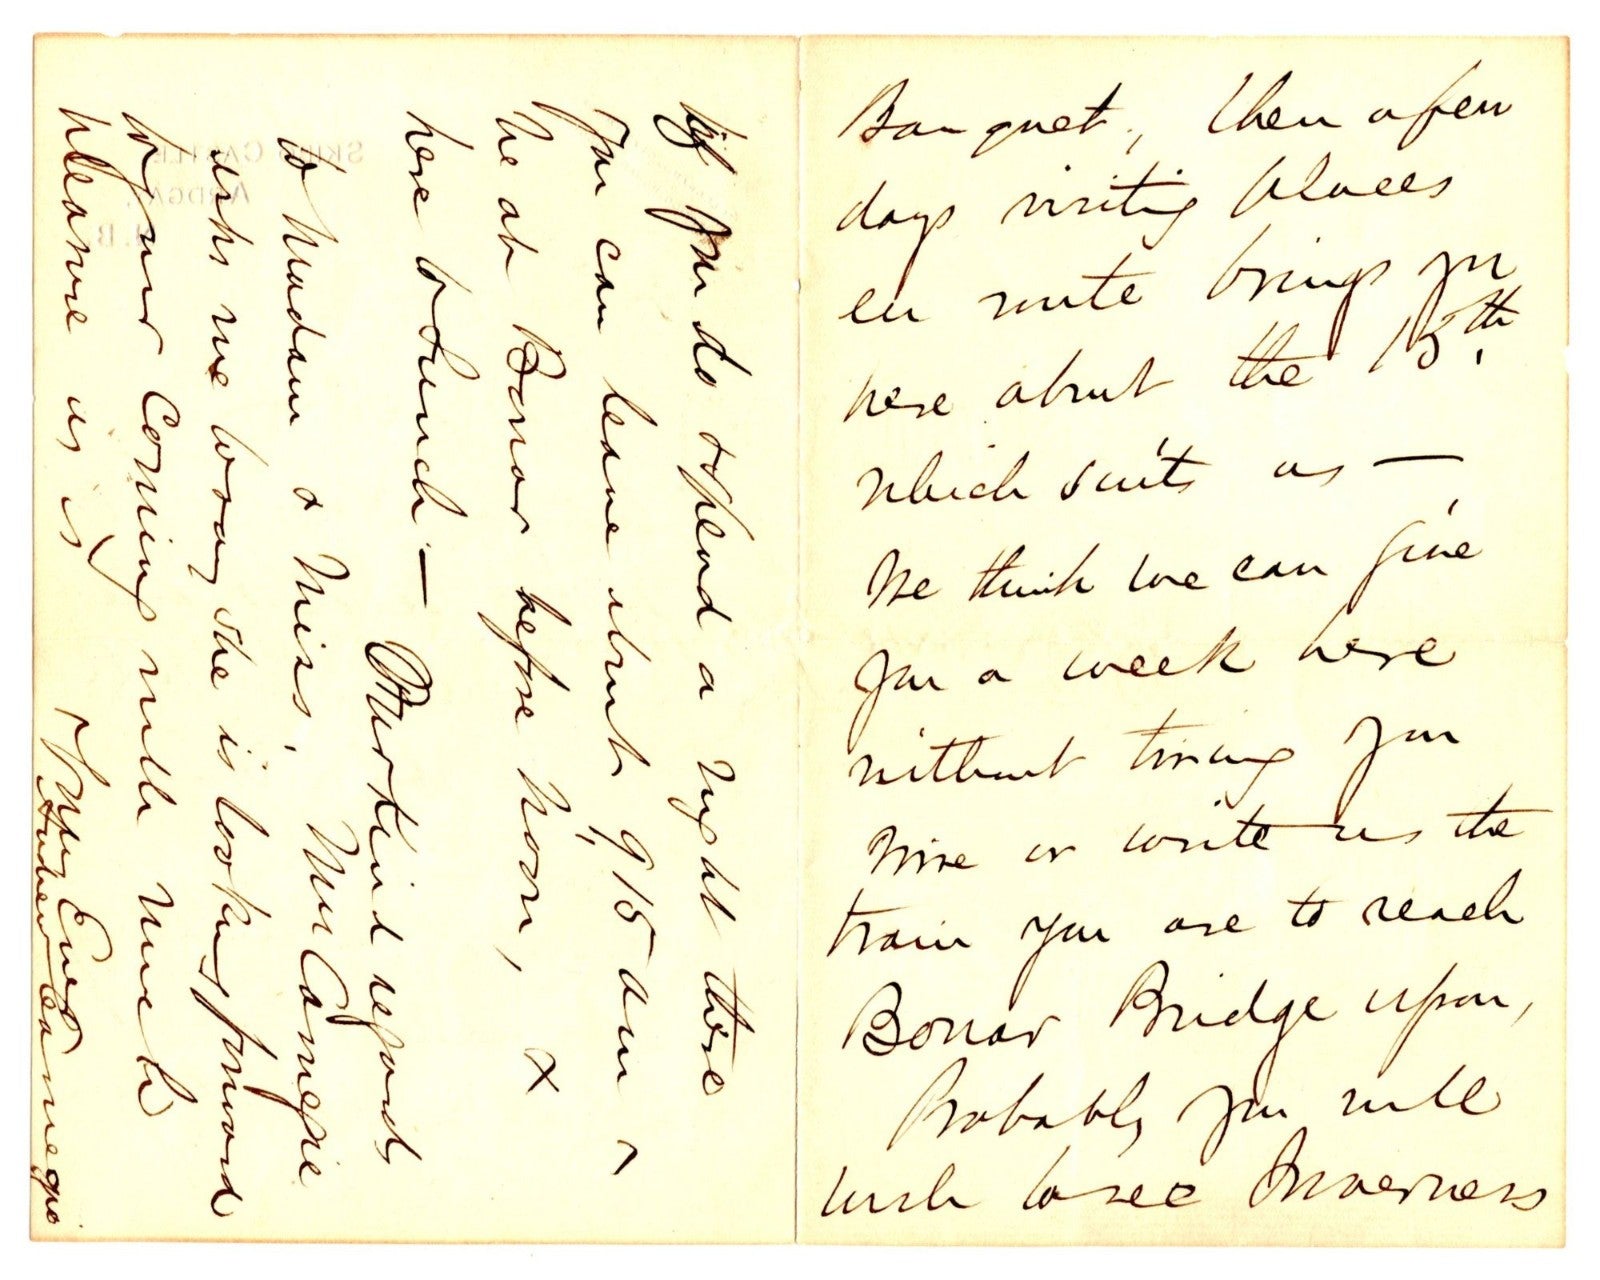 Banquet, then a few
days visiting places
en route brings you
here about the 15th.
which suits us —
We think we can give
you a week here
without tiring you
Wire or write us the
train you are to reach
Bonar Bridge upon,
Probably you will
wish to see Inverness
If you do & spend a night there
you can leave about 9,15 am &
be at Bonar before noon, &
here to Lunch —
Our kind regards
to Madam & Miss, Mrs Carnegie
asks me to say she is looking forward
to your coming with much
pleasure as is
Yours Ever
Andrew Carnegie
SKIBO CASTLE
ARDGAY,
N.B.